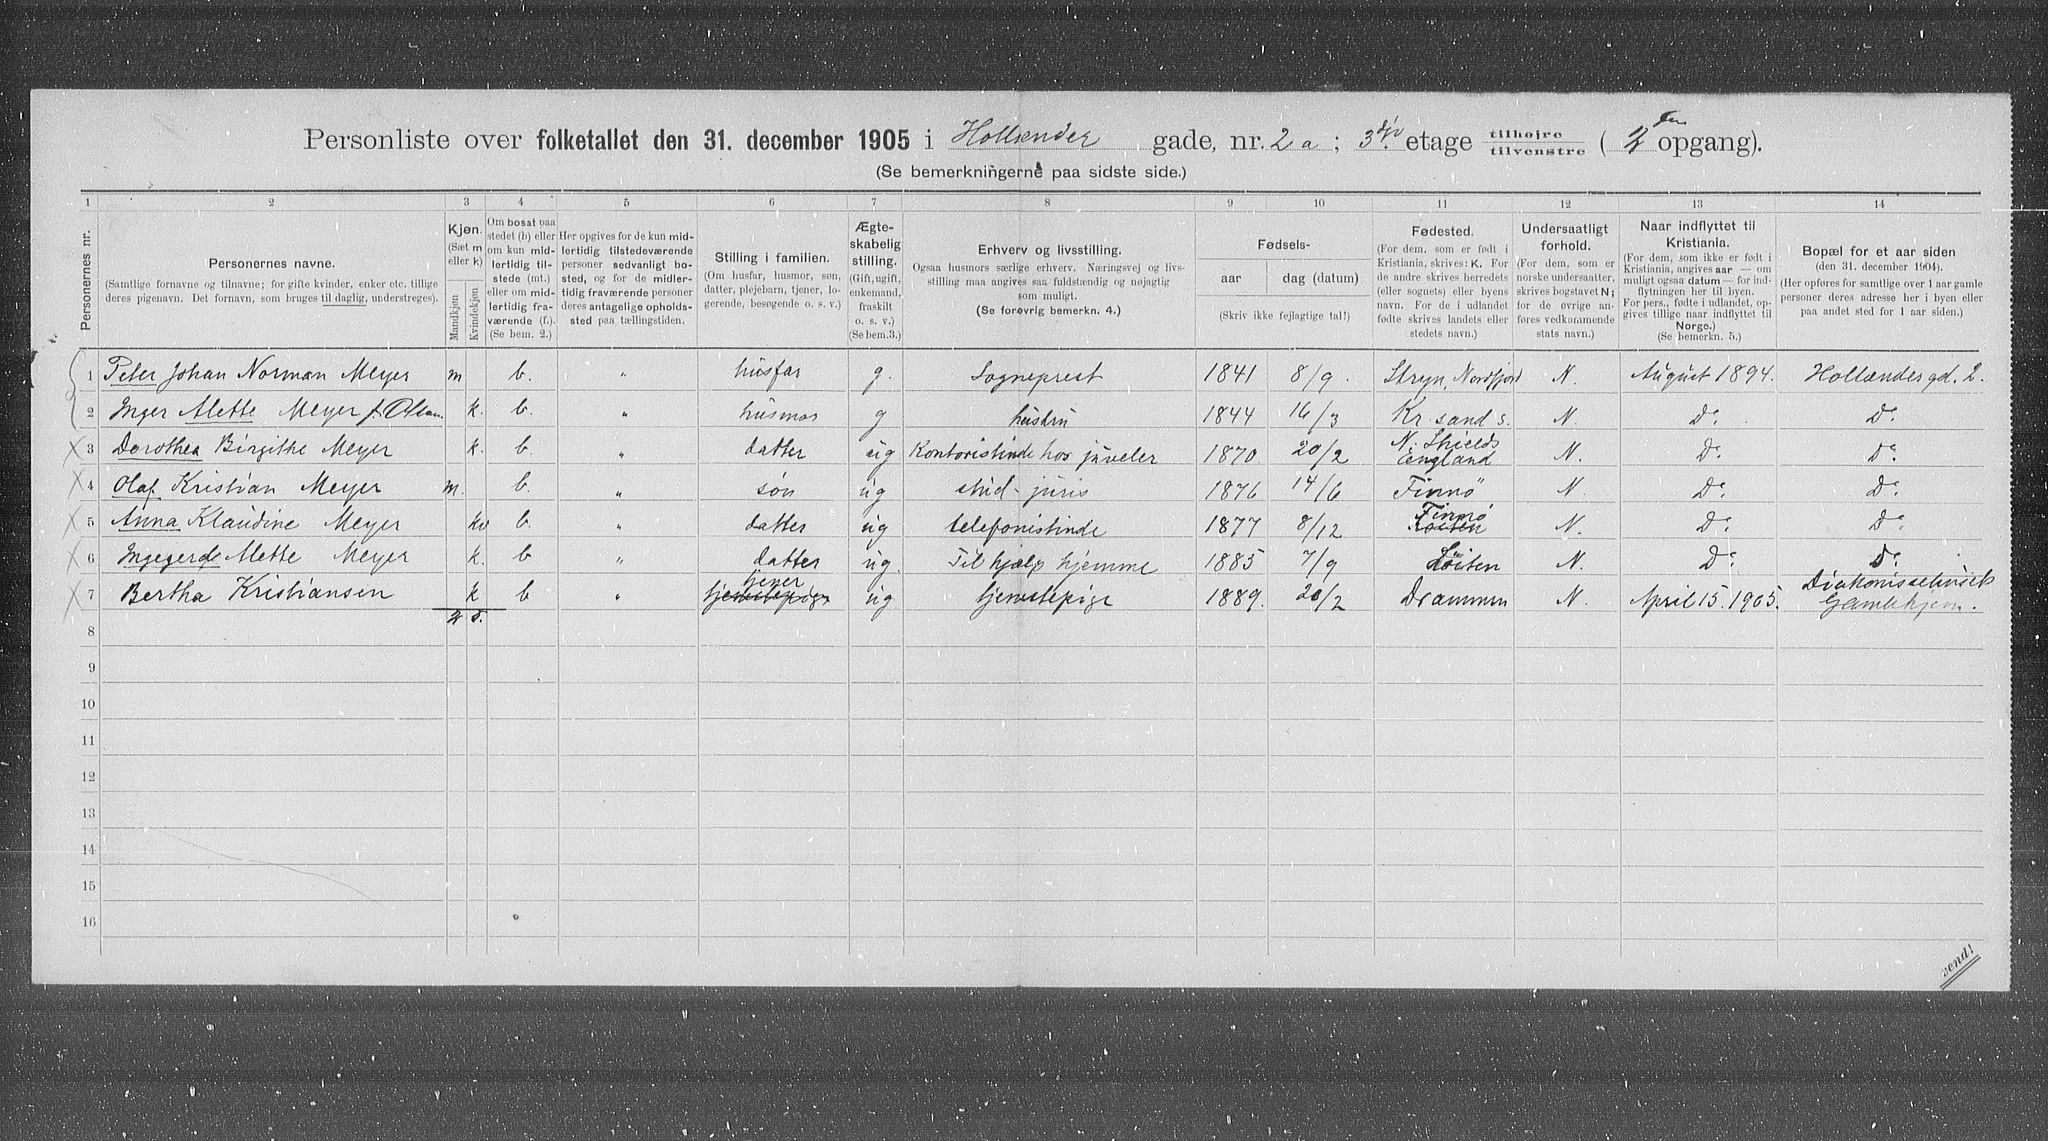 Personliste over folketallet den 31. december 1905 i Hollænder gade, nr. 2 a ; 3die etage tilhøire tilvenstre ( 2den opgang).
(Se bemerkningerne paa sidste side.)
1 2 3 4 5 6 7 8 9 10 11 12 13 14
Personernes nr.
Personernes navne.
(Samtlige fornavne og tilnavne; for gifte kvinder, enker etc. tillige deres pigenavn. Det fornavn, som bruges til daglig, understreges).
Kjøn. (Sæt m eller k)
Mandkjøn Kvindekjøn
Om bosat paa stedet (b) eller om kun midlertidig tilstede (mt.) eller om midlertidig fraværende (f.). (Se bem. 2.)
Her opgives for de kun midlertidig tilstedeværende personer sedvanligt bosted, og for de midlertidig fraværende personer deres antagelige opholdssted paa tællingstiden.
Stilling i familien.
(Om husfar, husmor, søn, datter, plejebarn, tjener, logerende, besøgende o. s. v.)
Ægteskabelig stilling.
(Gift, ugift, enkemand, fraskilt o. s. v.) (Se bem.3.)
Erhverv og livsstilling.
Ogsaa husmors særlige erhverv. Næringsvej og livsstilling maa angives saa fuldstændig og nøjagtig som muligt.
(Se forøvrig bemerkn. 4.)
Fødsels-
aar dag (datum)
(Skriv ikke fejlagtige tal!)
Fødested.
(For dem, som er født i Kristiania, skrives: K. For de andre skrives herredets (eller sognets) eller byens navn. For de i udlandet fødte skrives landets eller stedets navn.)
Undersaatligt forhold.
(For dem, som er norske undersaatter, skrives bogstavet N; for de øvrige anføres vedkommende stats navn.)
Naar indflyttet til Kristiania.
(For dem, som ikke er født i Kristiania, angives aar — om muligt ogsaa datum — for indflytningen her til byen. For pers., fødte i udlandet, opgives tillige naar indflyttet til Norge.) (Se bemerkn. 5.)
Bopæl for et aar siden
(den 31. december 1904).
(Her opføres for samtlige over 1 aar gamle personer deres adresse her i byen eller paa andet sted for 1 aar siden.)
1 Peter Johan Norman Meyer m b. " husfar g. Sogneprest 1841 8/9. Stryn, Nordfjord N. August 1894. Hollændergd. 2.
2 Inger Alette Meyer f. Olsen k. b. " husmor g hustru 1844 16/3 Kr.sand s. N. Do. Do.
3 Dorothea Birgithe Meyer k. b " datter ug Kontoristinde hos juveler 1870 20/2 N. Shields England N. Do. Do.
4 Olaf Kristian Meyer m. b. " søn ug stud. juris 1876 14/6 Finnø N. Do. Do.
5 Anna Klaudine Meyer kv b. " datter ug telefonistinde 1877 8/12 Finnø Løiten N. Do. Do.
6 Ingegerde Alette Meyer k. b " datter ug. Til hjælp hjemme 1885 7/9 Løiten N. Do. Do.
7 Bertha Kristiansen k b " tjenestepige tjener ug tjenestepige 1889. 20/2 Drammen N. April 15. 1905. Diakonisseinst. Gamlehjem.
2 5.
8
9
10
11
12
13
14
15
16
vend!